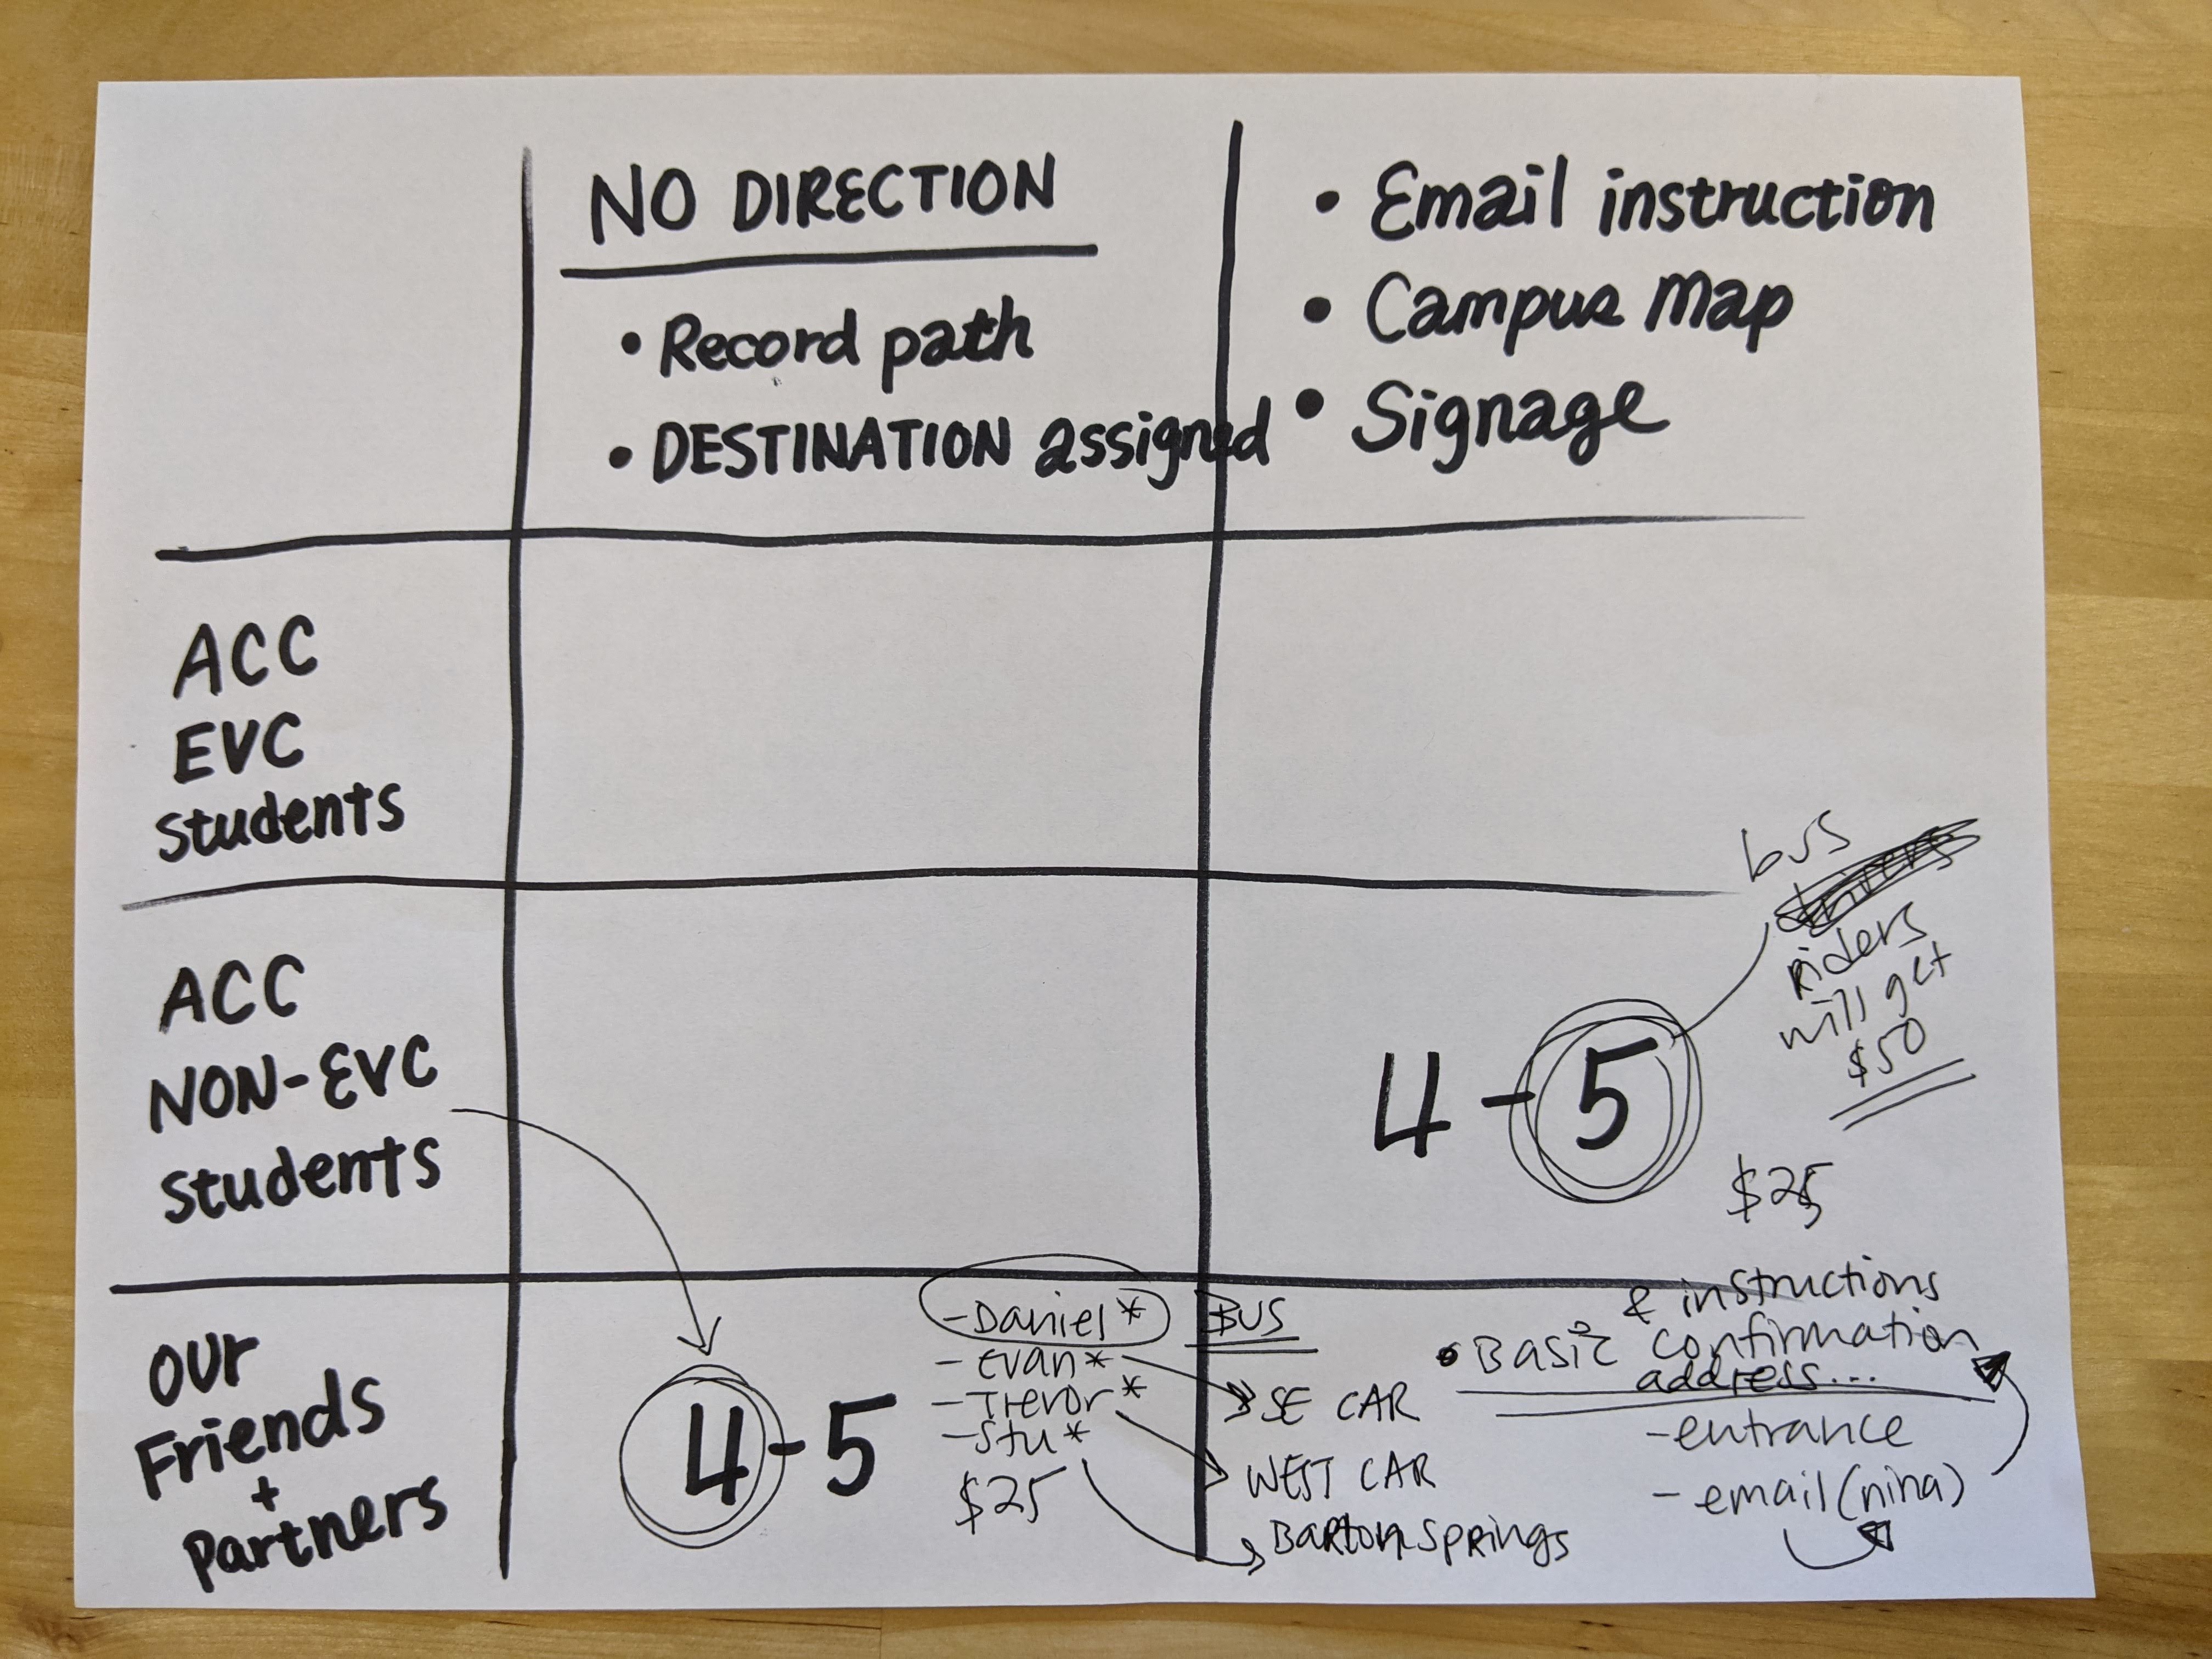 NO DIRECTION
• Record path
• DESTINATION assigned
• Email instruction
• Campus Map
• Signage
ACC
EVC
students
ACC
NON-EVC
students
bus
riders
will get
$50
4-5
$25
OUR
Friends
+
Partners
4-5
-Daniel*
- Evan*
- Trevor*
- Stu*
$25
BUS
SE CAR
WEST CAR
Barton Springs
& instructions
• Basic confirmation
address...
-entrance
- email (nina)